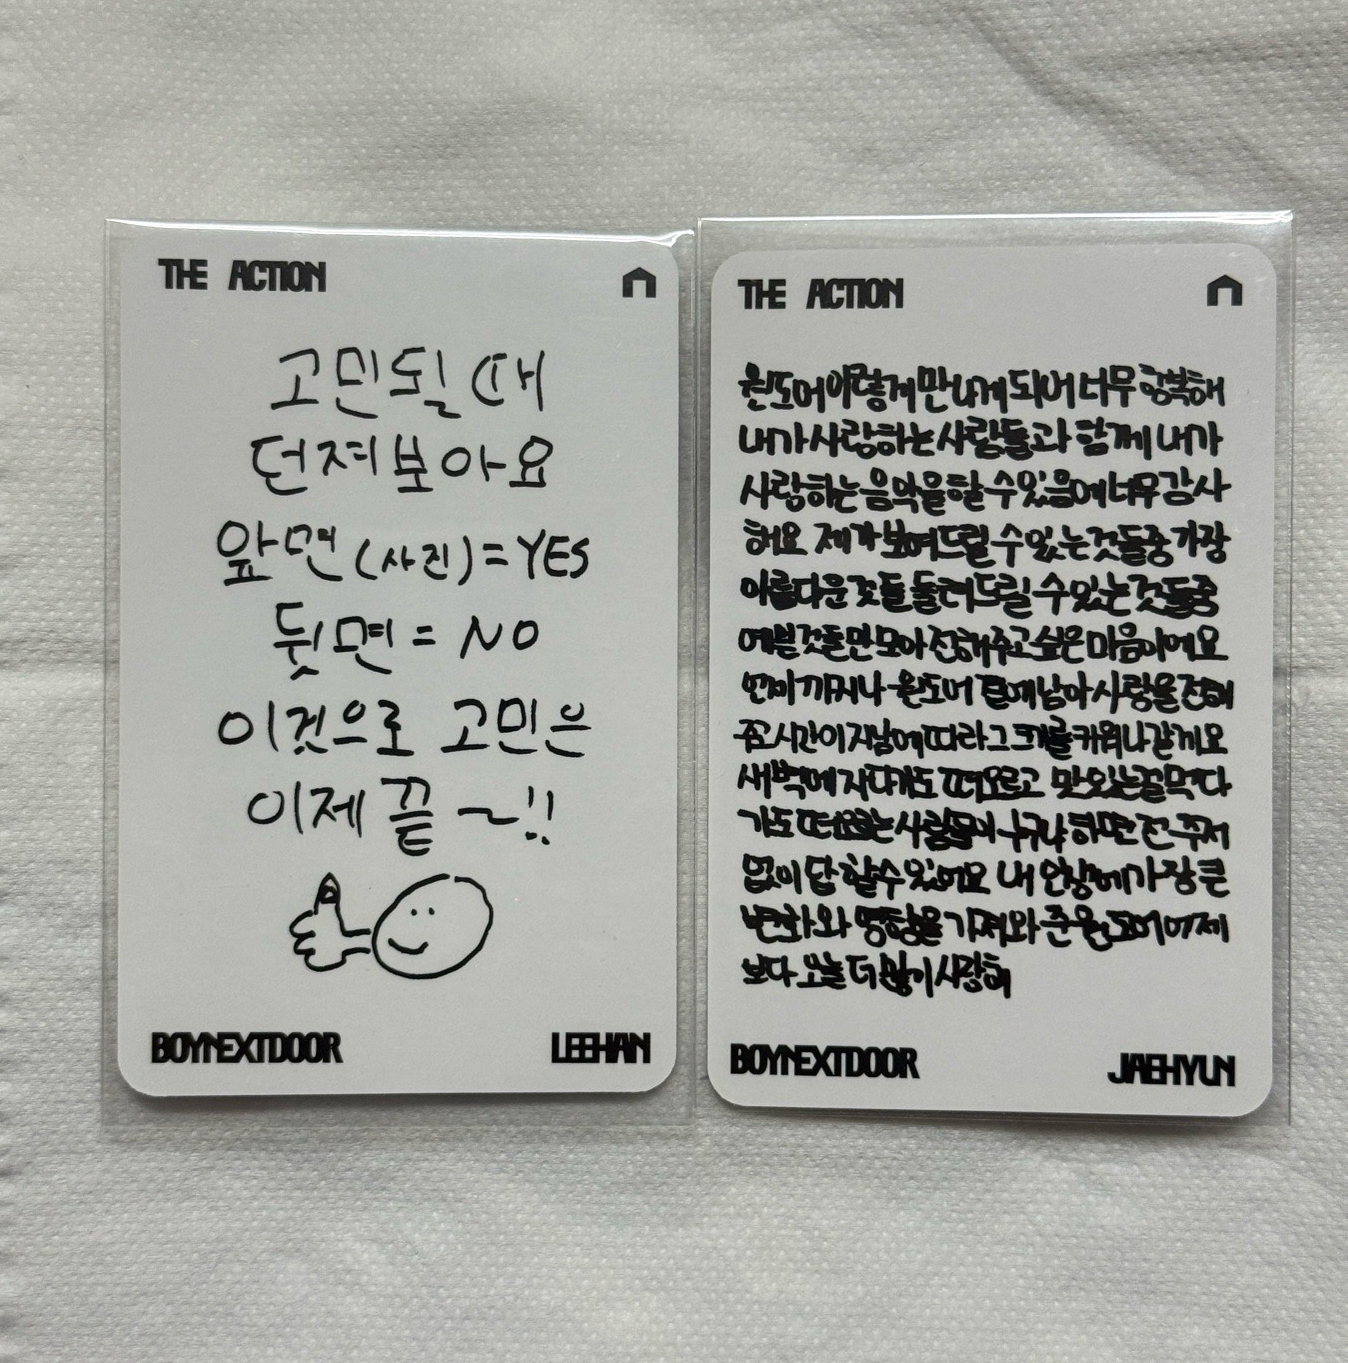 THE ACTION
고민될때
던져보아요
앞면 (사진) = YES
뒷면 = NO
이것으로 고민은
이제 끝 ~!!
BOYNEXTDOOR
LEEHAN
THE ACTION
원도어 이렇게 만나게 되어 너무 행복해
내가 사랑하는 사람들과 함께 내가
사랑하는 음악을 할 수 있음에 너무 감사
해요 제가 보여드릴 수 있는 것들중 가장
아름다운 것들 들려드릴 수 있는 것들중
예쁜 것들만 모아 전해주고 싶은 마음이에요
언제까지나 원도어 곁에 남아 사랑을 전해
주고 시간이 지남에 따라 그 크기를 키워나갈게요
새벽에 자다가도 떠오르고 맛있는걸 먹다
가도 떠오르는 사람들이 누구냐 하면 전 주저
없이 답 할 수 있어요 내 인생에 가장 큰
변화와 영향을 가져와 준 원도어 어제
보다 오늘 더 많이 사랑해
BOYNEXTDOOR
JAEHYUN